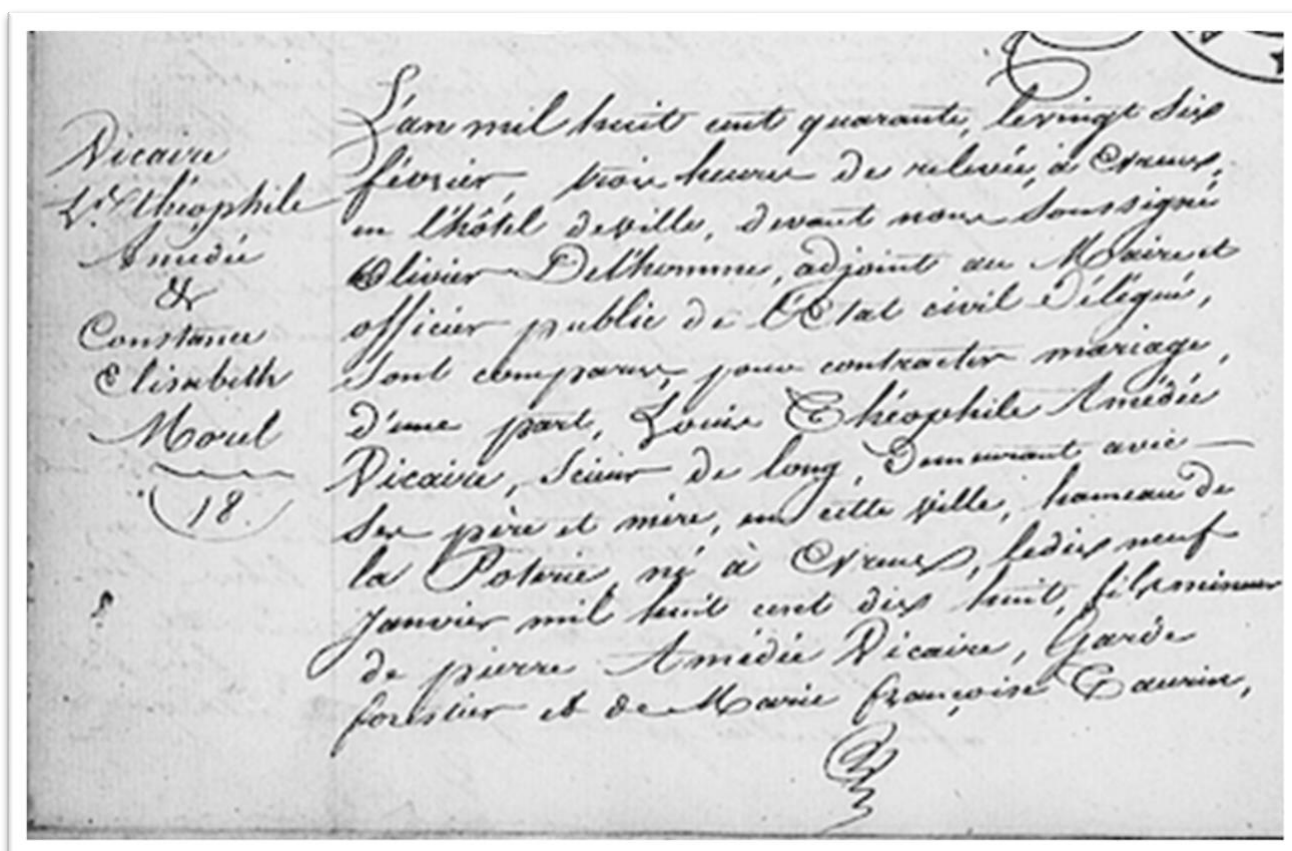 Vicaire
Ls Théophile
Amédée
&
Constance
Elisabeth
Morel
18.
L'an mil huit cent quarante, le vingt six
février, trois heures de relevée, à Evreux,
en l'hôtel de ville, devant nous soussigné
Olivier Delhomme, adjoint au Maire et
officier public de l'Etat civil Délégué,
Sont comparus, pour contracter mariage,
d'une part, Louis Théophile Amédée
Vicaire, Scieur de long, Demeurant avec
Ses père et mère, en cette ville, hameau de
la Poterie, né à Evreux, le dix neuf
Janvier mil huit cent dix huit, fils mineur
de pierre Amédée Vicaire, Garde
forestier et de Marie françoise Taurin,